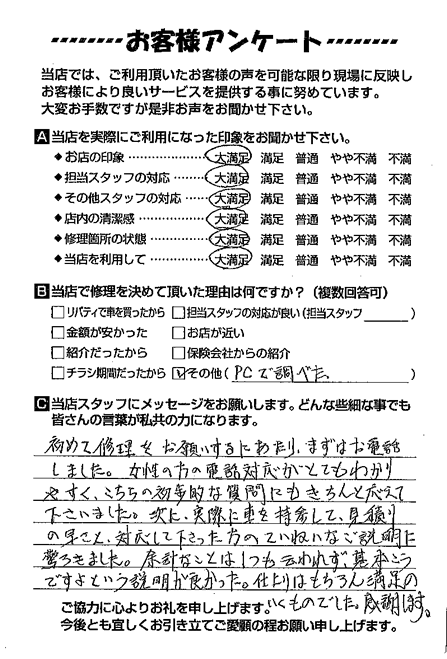 お客様アンケート
当店では、ご利用頂いたお客様の声を可能な限り現場に反映し
お客様により良いサービスを提供する事に努めています。
大変お手数ですが是非お声をお聞かせ下さい。
A 当店を実際にご利用になった印象をお聞かせ下さい。
◆お店の印象 大満足 満足 普通 やや不満 不満
◆担当スタッフの対応 大満足 満足 普通 やや不満 不満
◆その他スタッフの対応 大満足 満足 普通 やや不満 不満
◆店内の清潔感 大満足 満足 普通 やや不満 不満
◆修理箇所の状態 大満足 満足 普通 やや不満 不満
◆当店を利用して 大満足 満足 普通 やや不満 不満
B 当店で修理を決めて頂いた理由は何ですか？（複数回答可）
□リバティで車を買ったから □担当スタッフの対応が良い（担当スタッフ ）
□金額が安かった □お店が近い
□紹介だったから □保険会社からの紹介
□チラシ期間だったから ☑その他（PCで調べた ）
C 当店スタッフにメッセージをお願いします。どんな些細な事でも
皆さんの言葉が私共の力になります。
初めて修理をお願いするにあたり、まずはお電話
しました。女性の方の電話対応がとてもわかり
やすく、こちらの初歩的な質問にもきちんと応えて
下さいました。次に、実際に車を持参して、見積り
の早さと、対応して下さった方のていねいなご説明に
驚ろきました。余計なことは1つも云われず、基本こう
ですよという説明が良かった。仕上りはもちろん満足の
いくものでした。感謝します。
ご協力に心よりお礼を申し上げます。
今後とも宜しくお引き立てご愛顧の程お願い申し上げます。